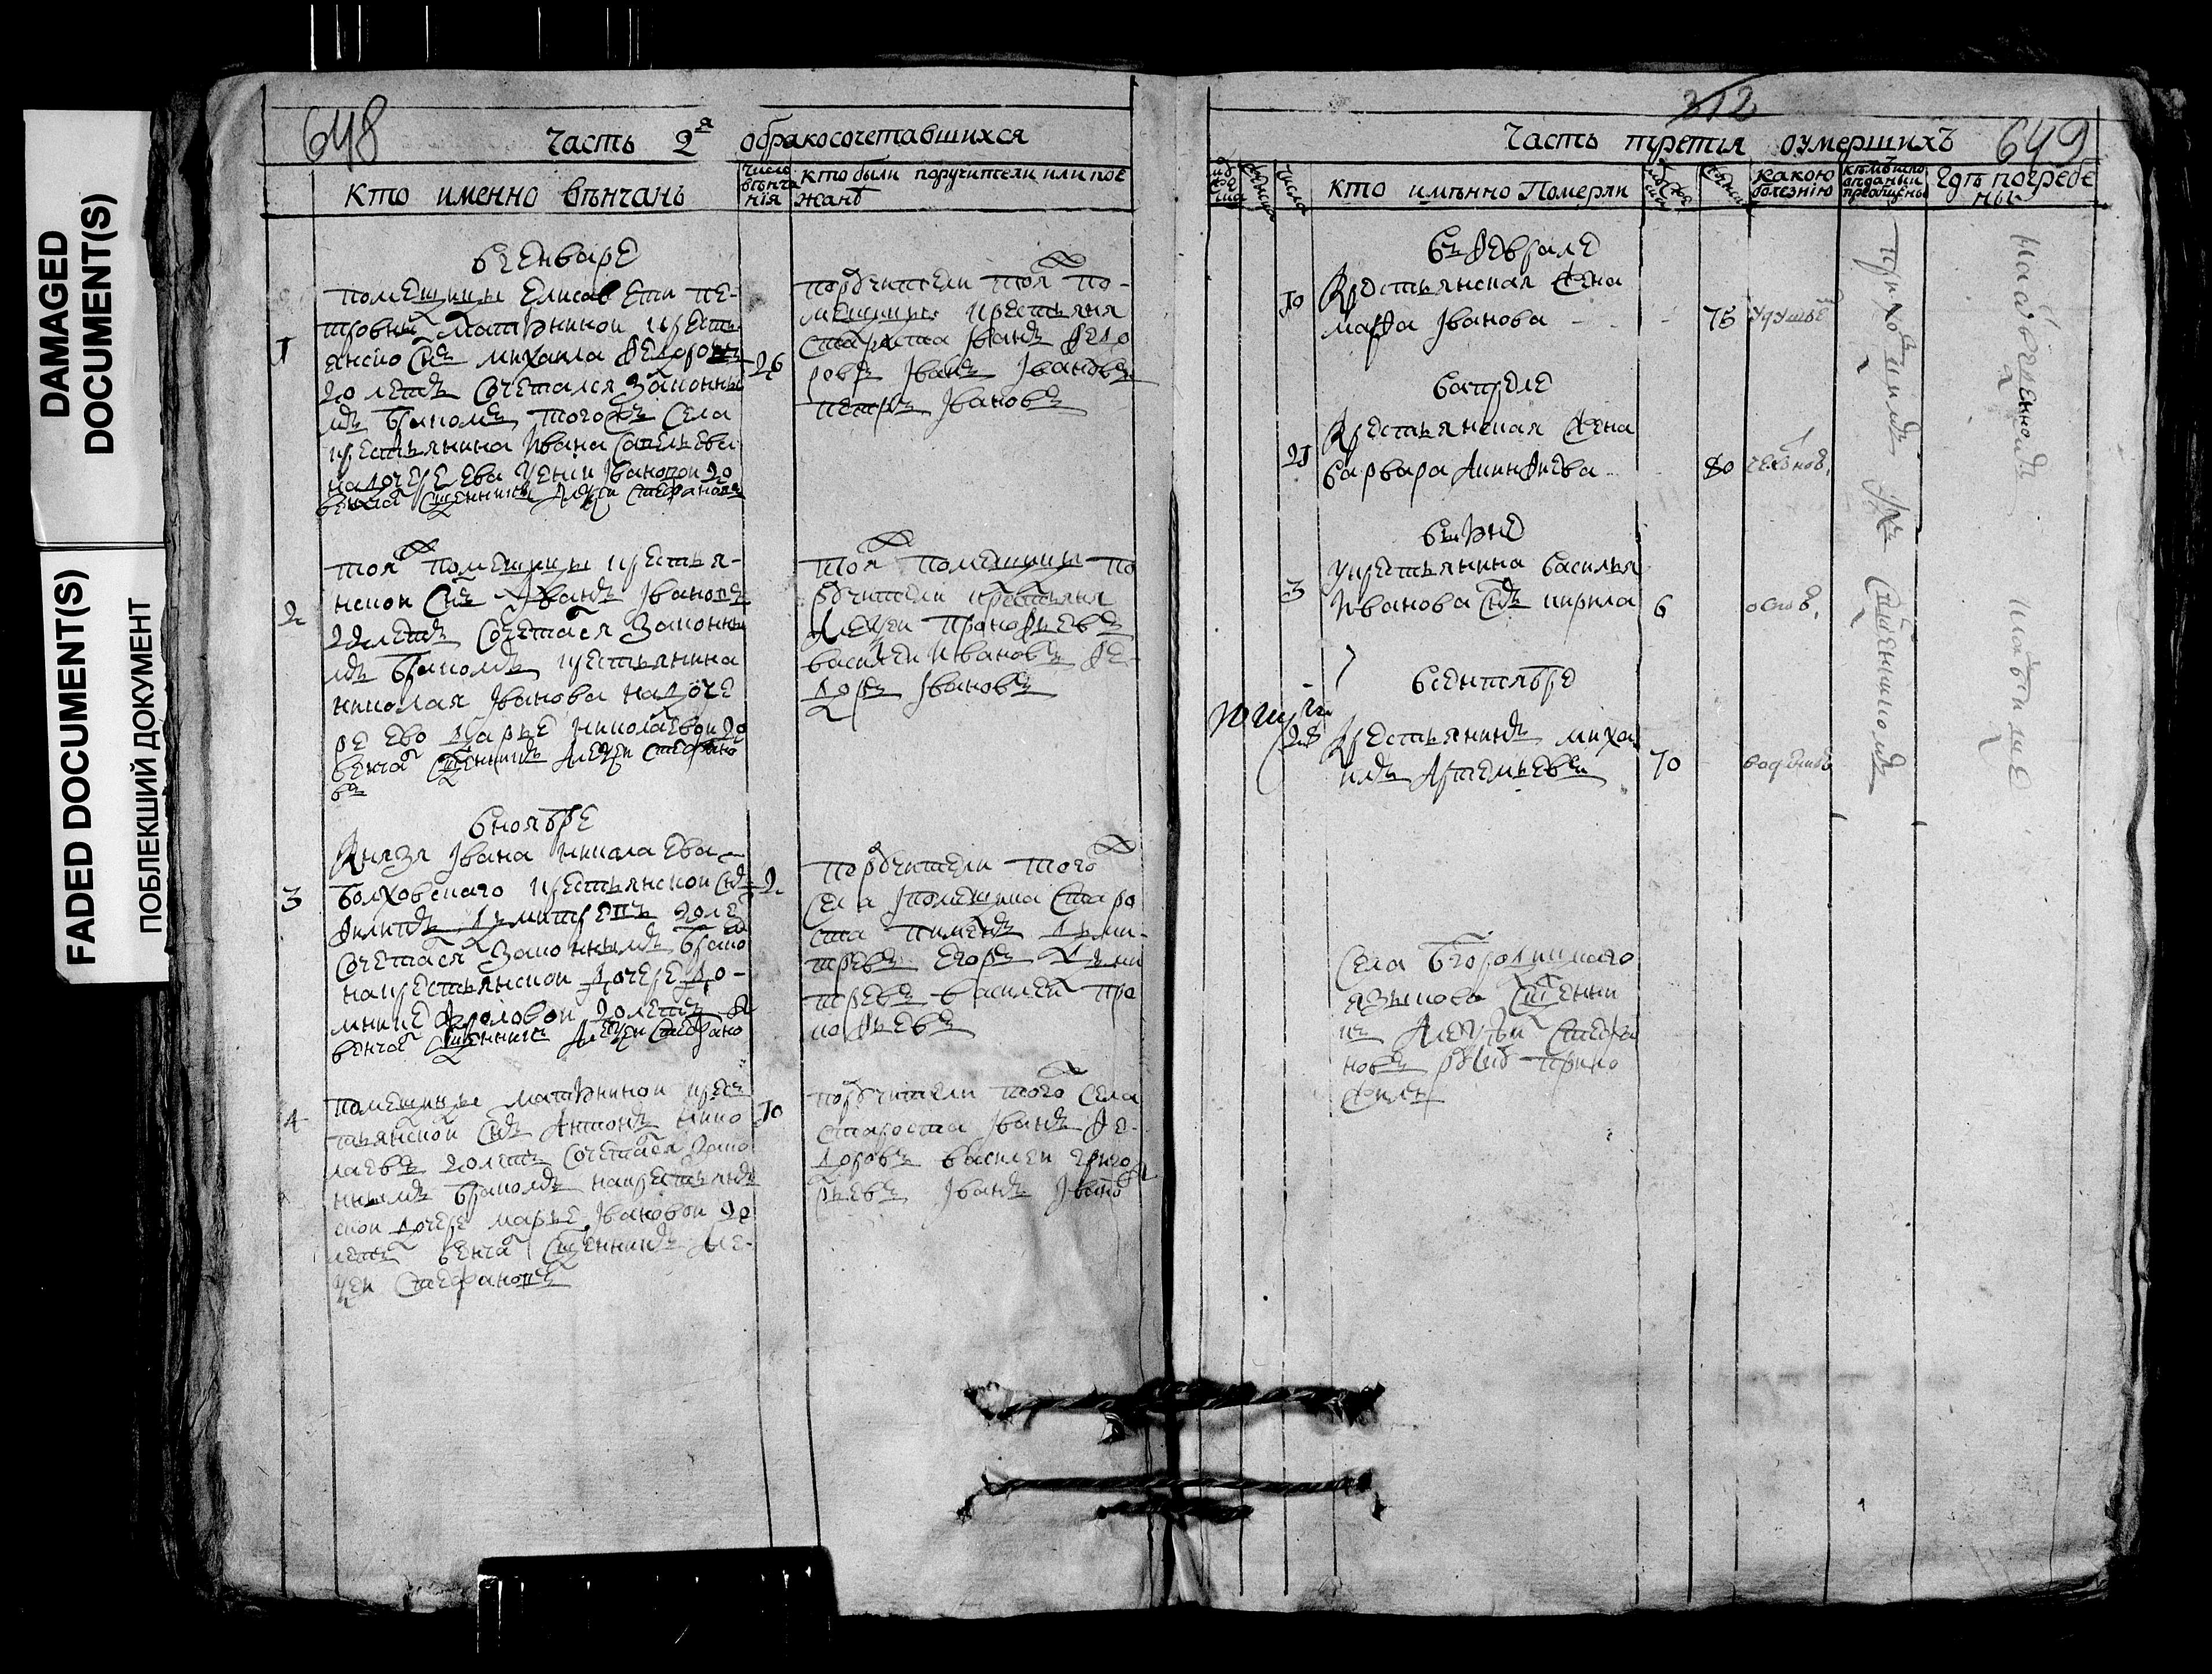 DAMAGED
DOCUMENT(S)
FADED DOCUMENT(S)
ПОБЛЕКШИЙ ДОКУМЕНТ
648
Часть 2я обракосочетавшихся
кто именно вѣнчанъ
число вѣнчания
кто были поручители или поезжанѣ
вгенваре
1
помещицы Елисавети пе-
тровны Матюнинои кресть
янско снъ михаила Федоровъ
20 летъ сочетался законны
мъ бракомъ тогожъ села
крестьянина Ивана Савельева
на дочере ева Ивановои 20
венчал сщенникъ Алеѯеи Стефановъ
26
поручители тояж по-
мещицы крестьяня
староста Іванъ Федо
ровъ Іванъ Івановъ
петръ Івановъ
2
тояж помещицы крестья-
нскои снъ Іванъ Івановъ
22 летъ сочетался законны
мъ бракомъ крестьянина
николая Іванова на доче
ре ево дарье николаевои 20
венчал сщенникъ Алеѯеи Стефано
въ
тояж помещицы по
ручители крестьяня
Алеѯеи Прокофьевъ
василеи Ивановъ Фе-
доръ Івановъ
вноябре
3
Князя Івана николаева
Болховскаго крестьянскои снъ
Филипъ Дмитревъ 20 ле
сочетался законнымъ брако
на крестьянскои дочере до-
мнике Фроловои 20 летъ
венчал сщенникъ Алеѯеи Стефано
2
поручители тогож
села помещика старо
ста пименъ Дми-
тревъ егоръ Дми
тревъ василеи про
кофьевъ
4
помещицы матюнинои крес
тьянскои снъ Антонъ нико
лаевъ 20 летъ сочетался зако
ннымъ бракомъ на крестьянъ
скои дочере марье Івановои 20
летъ венчал сщенникъ Але-
ѯеи Стефановъ
10
поручители тогож села
староста Іванъ Фе-
доровъ василеи григо
рьевъ Іванъ Івановъ
312
649
Часть третья оумершихъ
числа
кто имѣнно Померли
какою болезнію
гдѣ погребены
въ Феврале
10
Крестьянская жена
марфа Іванова
75
удушье
вапреле
21
Крестьянская жена
варвара Акинфиева
80
въ июне
3
У крестьянина василья
Иванова снъ кирила
6
оспою
всентябре
28
Крестьянинъ миха
илъ Артемьевъ
70
приходскимъ ихъ сщенникомъ
на кладбище
Села Богородицкаго
языкова сщенни
къ Алеѯеи Стефа
новъ руку прило
жилъ